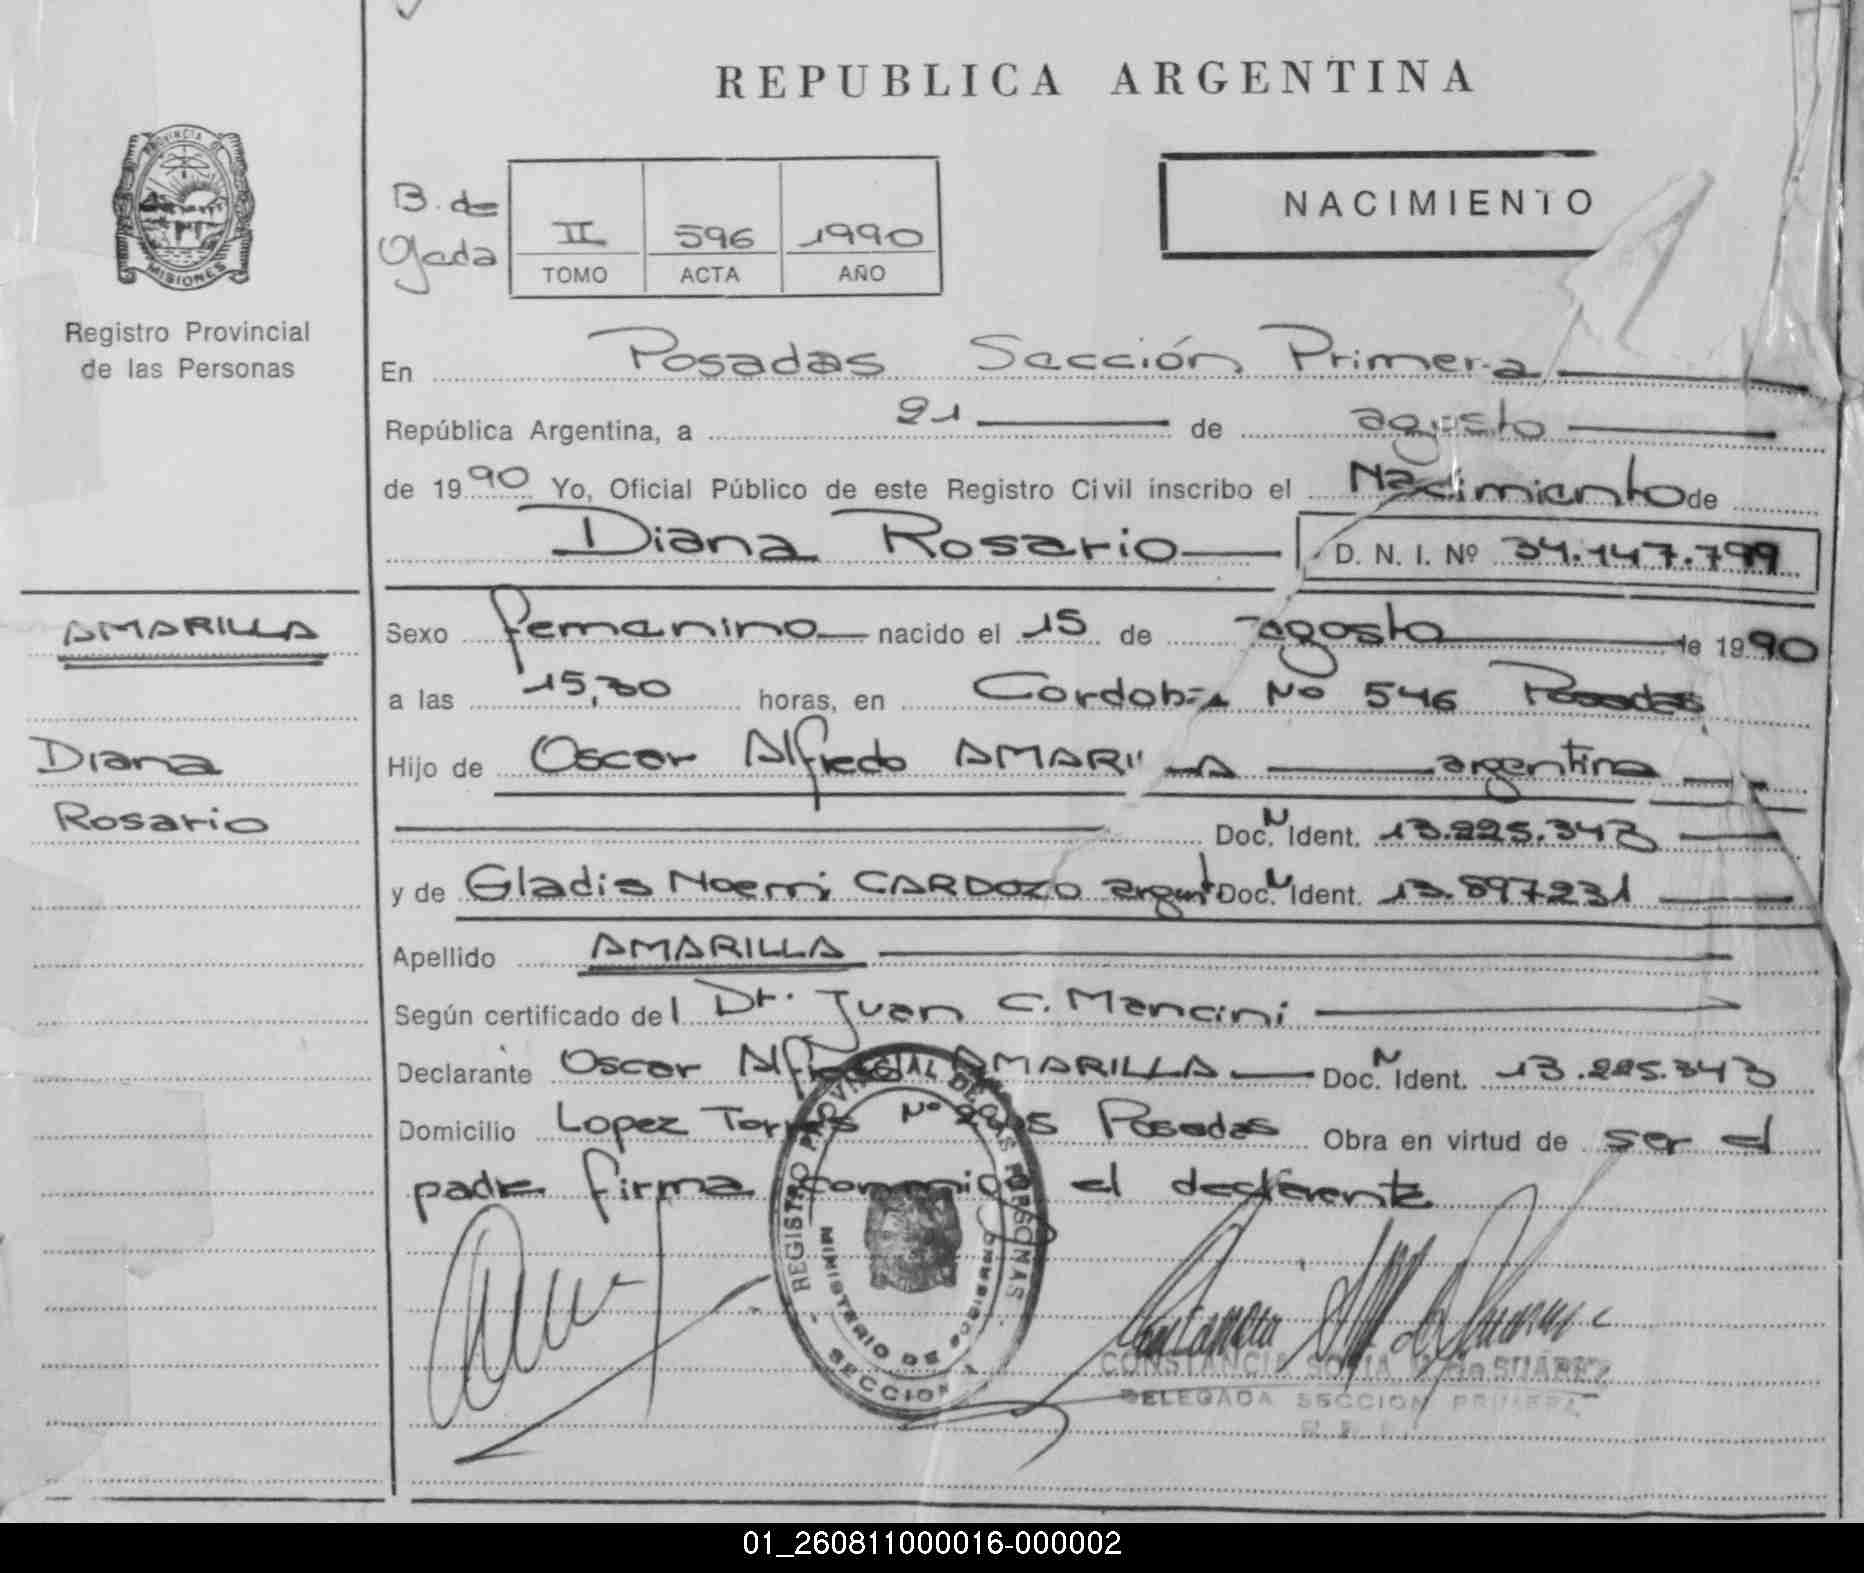 REPUBLICA ARGENTINA
PROVINCIA
MISIONES
Registro Provincial
de las Personas
NACIMIENTO
B. de
II 596 1990
TOMO ACTA AÑO
En Posadas Sección Primera
República Argentina, a 21 de agosto
de 1990 Yo, Oficial Público de este Registro Civil inscribo el Nacimiento de
Diana Rosario D. N. I. Nº 34.147.799
AMARILLA
Diana
Rosario
Sexo femenino nacido el 15 de agosto de 1990
a las 15,30 horas, en Cordoba Nº 546 Posadas
Hijo de Oscar Alfredo AMARILLA argentino
Doc. N Ident. 13.225.343
y de Gladis Noemi CARDOZO argent Doc. N Ident. 13.897.231
Apellido AMARILLA
Según certificado del Dr. Juan C. Mancini
Declarante Oscar Alfredo AMARILLA Doc. N Ident. 13.225.343
Domicilio Lopez Torres Nº Posadas Obra en virtud de ser el
padre firma conmigo el declarante
REGISTRO PROVINCIAL DE LAS PERSONAS
MINISTERIO DE GOBIERNO
SECCION 1
CONSTANCIA SOFIA M. de SUÁREZ
DELEGADA SECCION PRIMERA
01_260811000016-000002